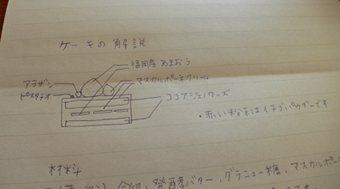 ケーキの解説
福岡産 あまおう
マスカルポーネクリーム
アラザン
ピスタチオ
ココアジェノワーズ
・赤い粉末はイチゴパウダーです
材料
卵, 発酵バター, グラニュー糖, マスカルポー